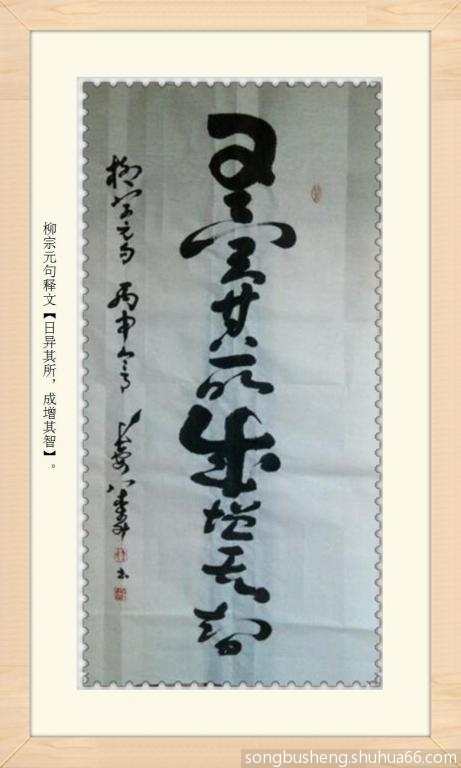 日異其所成增其智
柳宗元句 丙申 书
柳宗元句释文【日异其所，成增其智】。
songbusheng.shuhua66.com